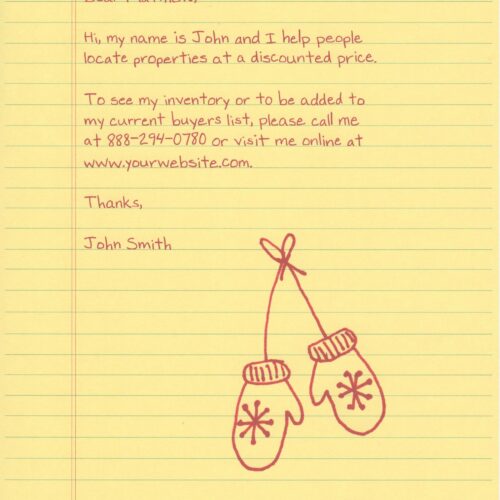 Hi, my name is John and I help people
locate properties at a discounted price.
To see my inventory or to be added to
my current buyers list, please call me
at 888-294-0780 or visit me online at
www.yourwebsite.com.
Thanks,
John Smith